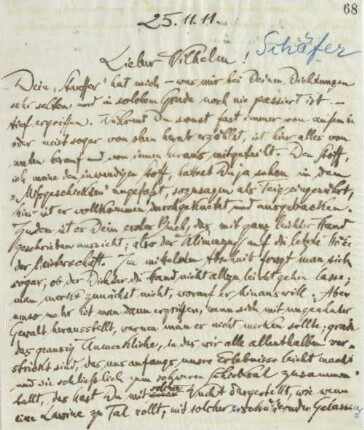 68
25.11.11.
Lieber Wilhelm! Schäfer
Dein „Stauffer“ hat mich – was mir bei Deinen Dichtungen
sehr selten und in solchem Grade noch nie passiert ist –
tief ergriffen. Während Du sonst fast immer von außen
oder meist sogar von oben herab erzählst, ist hier alles von
unten herauf und von innen heraus mitgeteilt. Den Stoff,
ich meine den inwendigen Stoff, hattest Du ja schon in den
„Mißgeschickten“ angefaßt, sozusagen als Teig eingerührt,
hier ist er vollkommen durchgeknetet und ausgebacken.
Zudem ist es Dein erstes Buch, das mit ganz leichter Hand
geschrieben aussieht; also der Klimmzug auf die letzte Höhe
der Meisterschaft. Im mittelsten Abschnitt fragt man sich
sogar, ob der Dichter die Hand nicht allzu leicht gehen lasse;
man merkt zunächst nicht, worauf er hinaus will. Aber
umso mehr ist man dann ergriffen, wenn sich mit ungeahnter
Gewalt herausstellt, warum man es nicht merken sollte, grade
das grausig Unmerkliche, in das wir alle allenthalben ver-
strickt sind, das uns anfangs unsre Erlebnisse leicht macht
und sie schließlich zum schweren Schicksal zusammen-
ballt, das hast Du mit solcher Wucht dargestellt, wie wenn
eine Lawine zu Tal rollt, mit solcher erschütternden Gelassen-